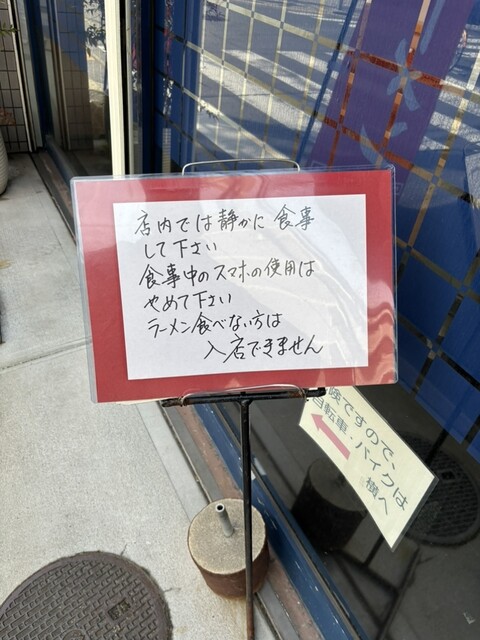 店内では静かに食事
して下さい
食事中のスマホの使用は
やめて下さい
ラーメン食べない方は
入店できません
険ですので、
自転車・バイクは
横へ